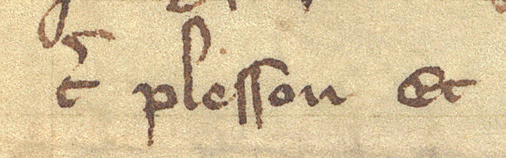 t̄ plesson et